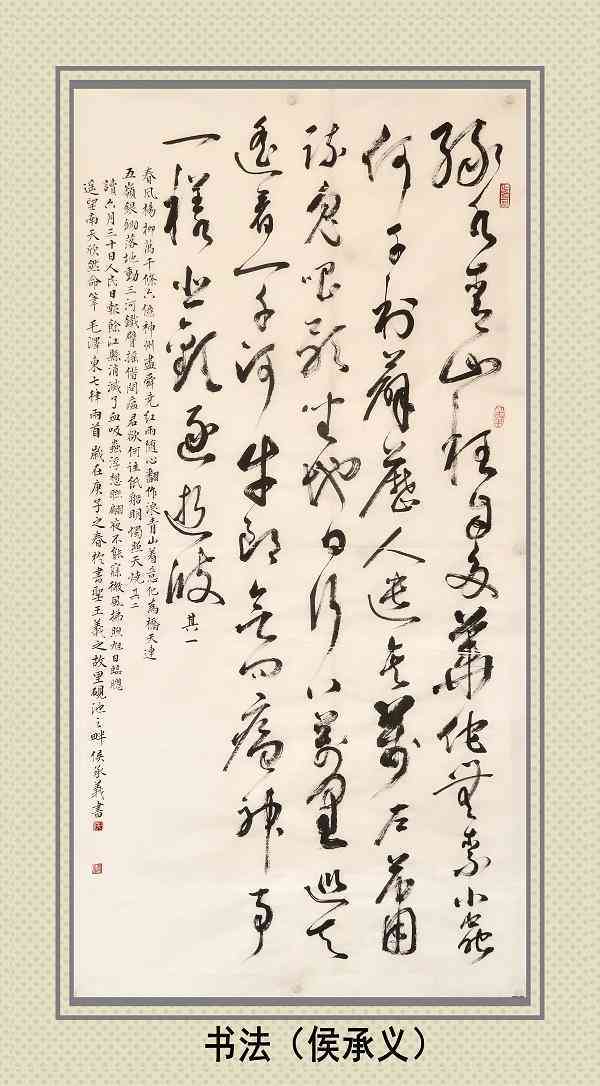 綠水青山枉自多華佗無奈小蟲
何千村薜荔人遺矢萬戶蕭
疏鬼唱歌坐地日行八萬里巡天
遙看一千河牛郎欲問瘟神事
一樣悲歡逐逝波 其一
春風楊柳萬千條六億神州盡舜堯紅雨隨心翻作浪青山着意化為橋天連
五嶺銀鋤落地動三河鐵臂搖借問瘟君欲何往紙船明燭照天燒其二
讀六月三十日人民日報餘江縣消滅了血吸蟲浮想聯翩夜不能寐微風拂煦旭日臨牕
遥望南天欣然命筆 毛澤東七律兩首 歲在庚子之春於書聖王羲之故里硯池之畔侯承義書
书法（侯承义）